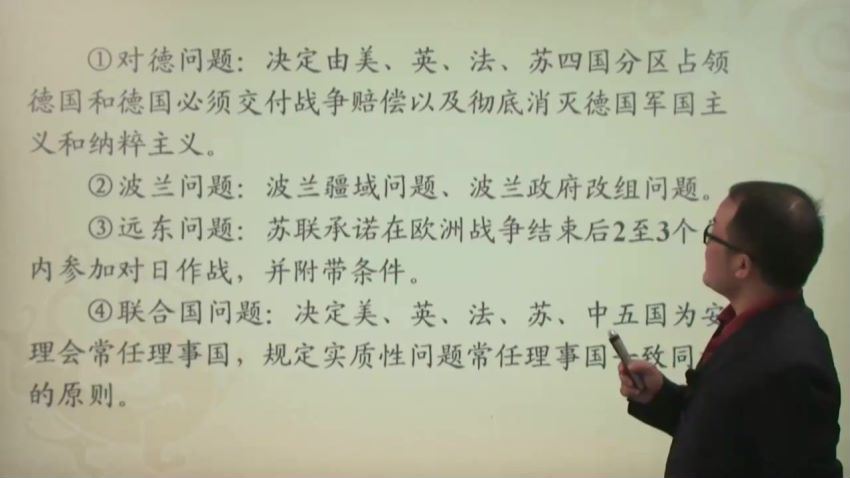 ①对德问题：决定由美、英、法、苏四国分区占领
德国和德国必须交付战争赔偿以及彻底消灭德国军国主
义和纳粹主义。
②波兰问题：波兰疆域问题、波兰政府改组问题。
③远东问题：苏联承诺在欧洲战争结束后2至3个
内参加对日作战，并附带条件。
④联合国问题：决定美、英、法、苏、中五国为安
理会常任理事国，规定实质性问题常任理事国一致同
的原则。